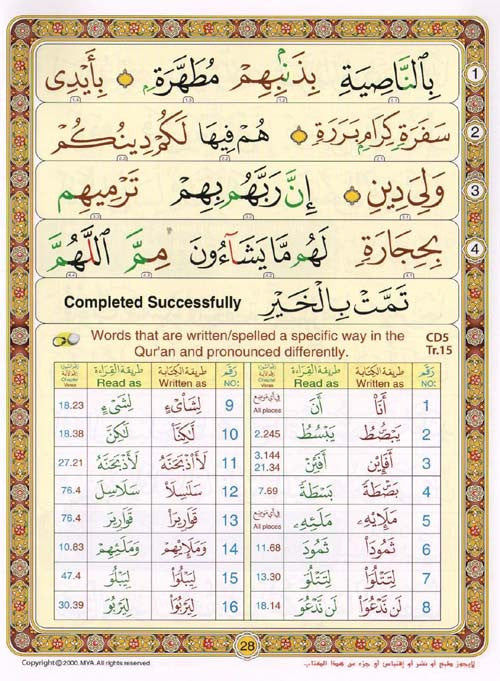 بِالنَّاصِيَةِ بِذَنۢبِهِمْ مُطَهَّرَةٍۭ بِأَيْدِى 1
سَفَرَةٍ كِرَامٍۭ بَرَرَةٍ هُمْ فِيهَا لَكُمْ دِينُكُمْ 2
وَلِىَ دِينِ إِنَّ رَبَّهُم بِهِمْ تَرْمِيهِم 3
بِحِجَارَةٍ لَهُم مَّا يَشَآءُونَ مِمَّ اللَّهُمَّ 4
تَمَّتْ بِالْخَيْرِ Completed Successfully
Words that are written/spelled a specific way in the Qur'an and pronounced differently.
CD5
Tr.15
رقم NO: طريقة الكتابة Written as طريقة القراءة Read as Chapter Verse
1 أَنَا۠ أَنَ All places
2 يَبْصُۜطُ يَبْسُطُ 2.245
3 أَفَإِيْن أَفَئِن 3.144 21.34
4 بَصْۜطَةً بَسْطَةً 7.69
5 مَلَإِيْهِ مَلَئِهِ All places
6 ثَمُودَا۟ ثَمُودَ 11.68
7 لِتَتْلُوَا۟ لِتَتْلُوَ 13.30
8 لَن نَدْعُوَا۟ لَن نَدْعُوَ 18.14
رقم NO: طريقة الكتابة Written as طريقة القراءة Read as Chapter Verse
9 لِشَا۟ىْءٍ لِشَىْءٍ 18.23
10 لَٰكِنَّا۠ لَٰكِنَّ 18.38
11 لَأَا۟ذْبَحَنَّهُ لَأَذْبَحَنَّهُ 27.21
12 سَلَٰسِلَا۟ سَلَاسِلَ 76.4
13 قَوَارِيرَا۟ قَوَارِيرَ 76.4
14 وَمَلَإِيْهِمْ وَمَلَئِهِمْ 10.83
15 لِيَبْلُوَا۟ لِيَبْلُوَ 47.4
16 لِيَرْبُوَا۟ لِيَرْبُوَ 30.39
28
Copyright © 2000. MYA. All rights reserved
لايجوز طبع أو نشر أو إقتباس أي جزء من هذا الكتاب